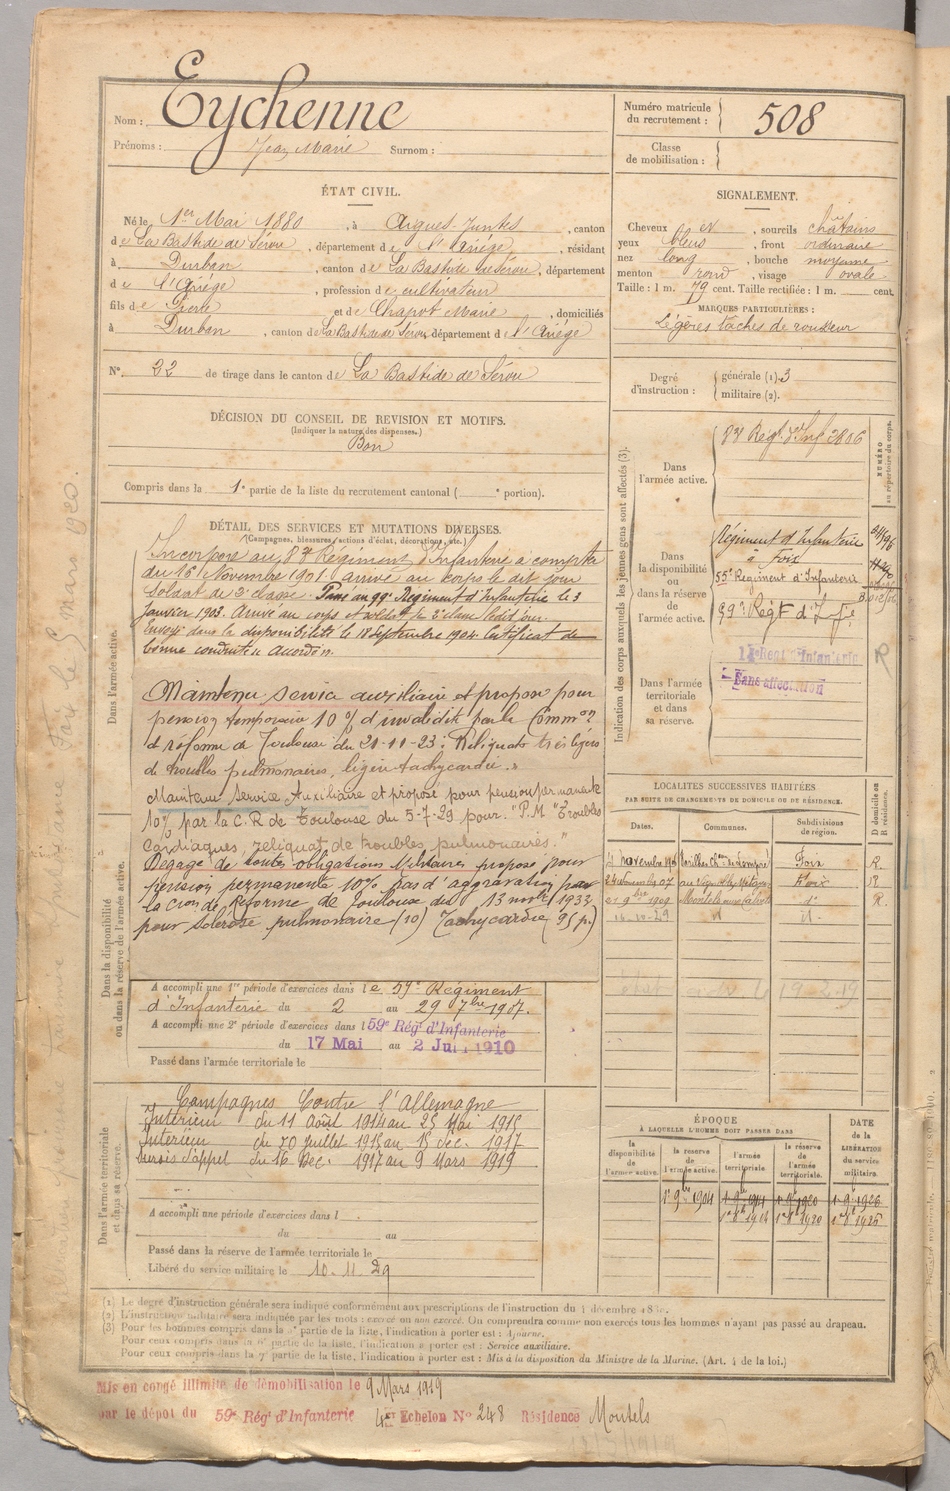 Nom : Eychenne
Prénoms : Jean Marie Surnom :
Numéro matricule du recrutement : 508
Classe de mobilisation :
ÉTAT CIVIL.
Né le 1er Mai 1880, à Aigues-Juntes, canton
de La Bastide de Sérou, département de l'Ariège, résidant
à Durban, canton de La Bastide de Sérou, département
de l'Ariège, profession de cultivateur
fils de Pierre et de Chapot Marie, domiciliés
à Durban, canton de La Bastide de Sérou, département de l'Ariège
N° 22 de tirage dans le canton de La Bastide de Sérou
SIGNALEMENT.
Cheveux et, sourcils châtains
yeux bleus, front ordinaire
nez long, bouche moyenne
menton rond, visage ovale
Taille : 1 m. 79 cent. Taille rectifiée : 1 m. cent.
MARQUES PARTICULIÈRES :
Légères tâches de rousseur
Degré d'instruction : générale (1). 3
militaire (2).
DÉCISION DU CONSEIL DE REVISION ET MOTIFS.
(Indiquer la nature des dispenses.)
Bon
Compris dans la 1e partie de la liste du recrutement cantonal ( e portion).
DÉTAIL DES SERVICES ET MUTATIONS DIVERSES.
(Campagnes, blessures, actions d'éclat, décorations, etc.)
Dans l'armée active.
Incorporé au 83e Régiment d'Infanterie à compter
du 16 Novembre 1901. arrivé au corps le dit jour
Soldat de 2e classe. Passé au 99e Régiment d'Infanterie le 3
Janvier 1903. Arrivé au corps et soldat de 2e classe ledit jour.
Envoyé dans la disponibilité le 18 septembre 1904. Certificat de
bonne conduite accordé.
Maintenu service auxiliaire et proposé pour
pension temporaire 10 % d'invalidité par la Common
de réforme de Toulouse du 21-11-23 : Reliquats très légers
de troubles pulmonaires, légère tachycardie.
Maintenu Service Auxiliaire et proposé pour pension permanente
10% par la C.R de Toulouse du 5-7-29 pour. "P.M "Troubles
cardiaques, reliquat de troubles pulmonaires."
Dégagé de toutes obligations Militaires proposé pour
pension permanente 10% pas d'aggravation par
la Cion de Réforme de Toulouse du 13 nov 1933
pour sclérose pulmonaire (10) Tachycardie 95 (p.)
Dans la disponibilité ou dans la réserve de l'armée active.
A accompli une 1re période d'exercices dans le 59e Régiment
d'Infanterie du 2 au 29 7bre 1907.
A accompli une 2e période d'exercices dans l 59e Rég. d'Infanterie
du 17 Mai au 2 Jui 1910
Passé dans l'armée territoriale le
Dans l'armée territoriale et dans sa réserve.
Campagnes Contre l'Allemagne
Intérieur du 11 Août 1914 au 25 Mai 1915
Intérieur du 20 juillet 1915 au 15 déc. 1917
Sursis d'appel du 16 Déc. 1917 au 9 Mars 1919
A accompli une période d'exercices dans l
du au
Passé dans la réserve de l'armée territoriale le
Libéré du service militaire le 10-11-29
Indication des corps auxquels les jeunes gens sont affectés (3).
NUMÉRO au répertoire du corps.
Dans l'armée active. 83e Régt d'Inf 2806
Dans la disponibilité ou dans la réserve de l'armée active.
Régiment d'Infanterie
à Foix
55e Régiment d'Infanterie
59e Régt d'Inf.
Dans l'armée territoriale et dans sa réserve.
Régt d'Infanterie
Sans affectation
R
LOCALITÉS SUCCESSIVES HABITÉES
PAR SUITE DE CHANGEMENTS DE DOMICILE OU DE RÉSIDENCE.
Dates. Communes. Subdivisions de région. D domicile ou R résidence.
Novembre Varilhes Foix R.
24 Novembre 07 Foix R
9bre 1909 Montels d° R.
16-10-29 d°
ÉPOQUE
À LAQUELLE L'HOMME DOIT PASSER DANS
la disponibilité de l'armée active.
la réserve de l'armée active.
l'armée territoriale.
la réserve de l'armée territoriale.
DATE de la LIBÉRATION du service militaire.
1er 9bre 1904 1er 9bre 1914 1er 9bre 1920 1er 9bre 1926
1er 8bre 1914 1er 8bre 1920 1er 8bre 1926
(1) Le degré d'instruction générale sera indiqué conformément aux prescriptions de l'instruction du 4 décembre 18
(2) L'instruction militaire sera indiquée par les mots : exercé ou non exercé. On comprendra comme non exercés tous les hommes n'ayant pas passé au drapeau.
(3) Pour les hommes compris dans la 5e partie de la liste, l'indication à porter est : Ajourné.
Pour ceux compris dans la 6e partie de la liste, l'indication à porter est : Service auxiliaire.
Pour ceux compris dans la 7e partie de la liste, l'indication à porter est : Mis à la disposition du Ministre de la Marine. (Art. 4 de la loi.)
Mis en congé illimité de démobilisation le 9 Mars 1919
par le dépôt du 59e Rég. d'Infanterie 4e Echelon N° 248 Résidence Montels